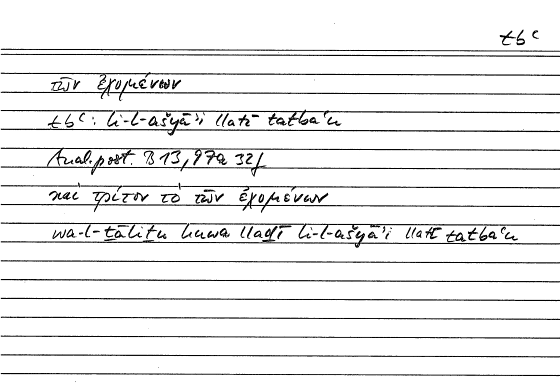 tbʿ
τῶν ἐχομένων
tbʿ: li-l-ašyāʾi llatī tatbaʿu
Anal. post. B 13, 97a 32f
καὶ τρίτον τὸ τῶν ἐχομένων
wa-l-ṯāliṯu huwa llaḏī li-l-ašyāʾi llatī tatbaʿu